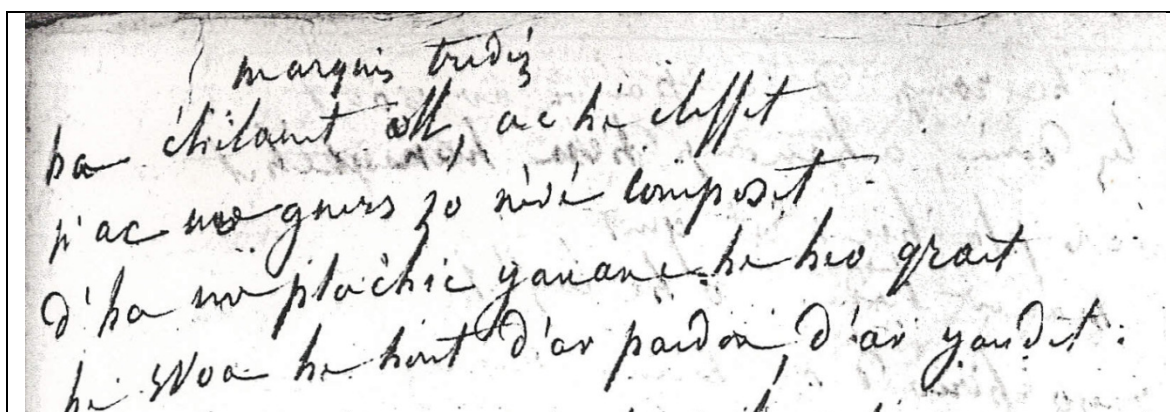 marquis tredié
ha chilaout oll, ac hé cleffet
p'ac une guers zo névé composet
d'ha une plachic yaouanc he heo grait
hé woa he hont d'ar pardon, d'ar yaudet :